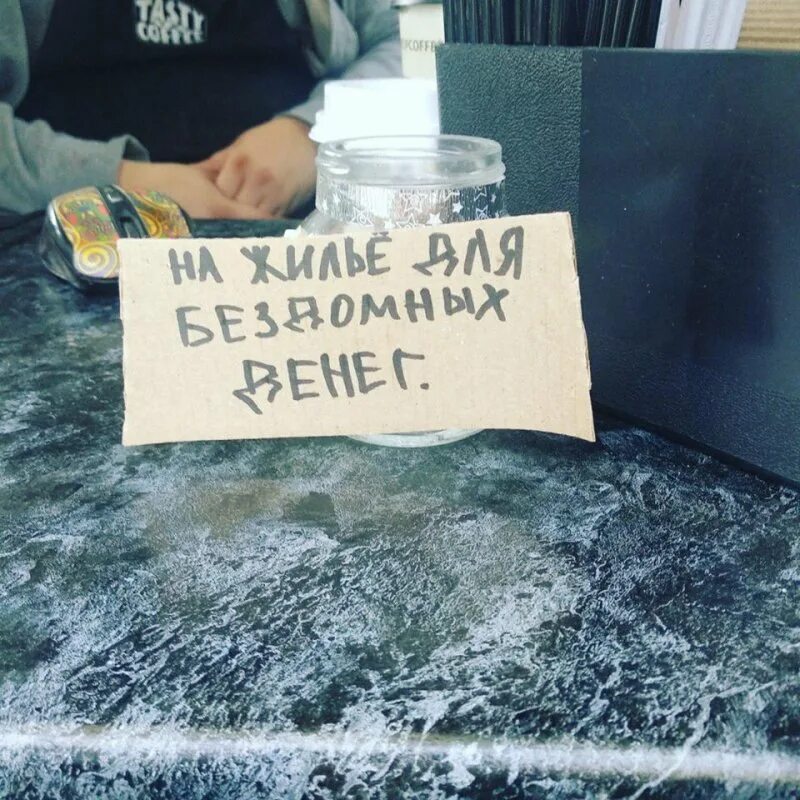 TASTY
COFFEE
COFFE
НА ЖИЛЬЁ ДЛЯ
БЕЗДОМНЫХ
ДЕНЕГ.